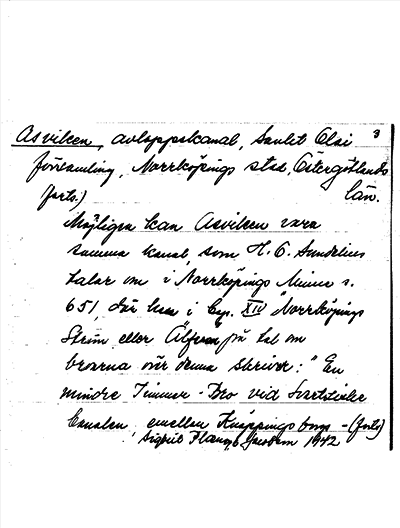 Asviken, avloppskanal, Sankt Olai 3
församling, Norrköpings stad, Östergötlands
(forts.) län.
Möjligen kan Asviken vara
samma kanal, som H. O. Sundelius
talar om i Norrköpings Minne s.
651, där han i Cap. XIV "Norrköpings
Ström eller Älfven på tal om
broarna över denna skriver: "En
mindre Timmer-Bro vid Svartsticke
Canalen, emellan Knäppingsborgs - (forts)
Sigrid 1942